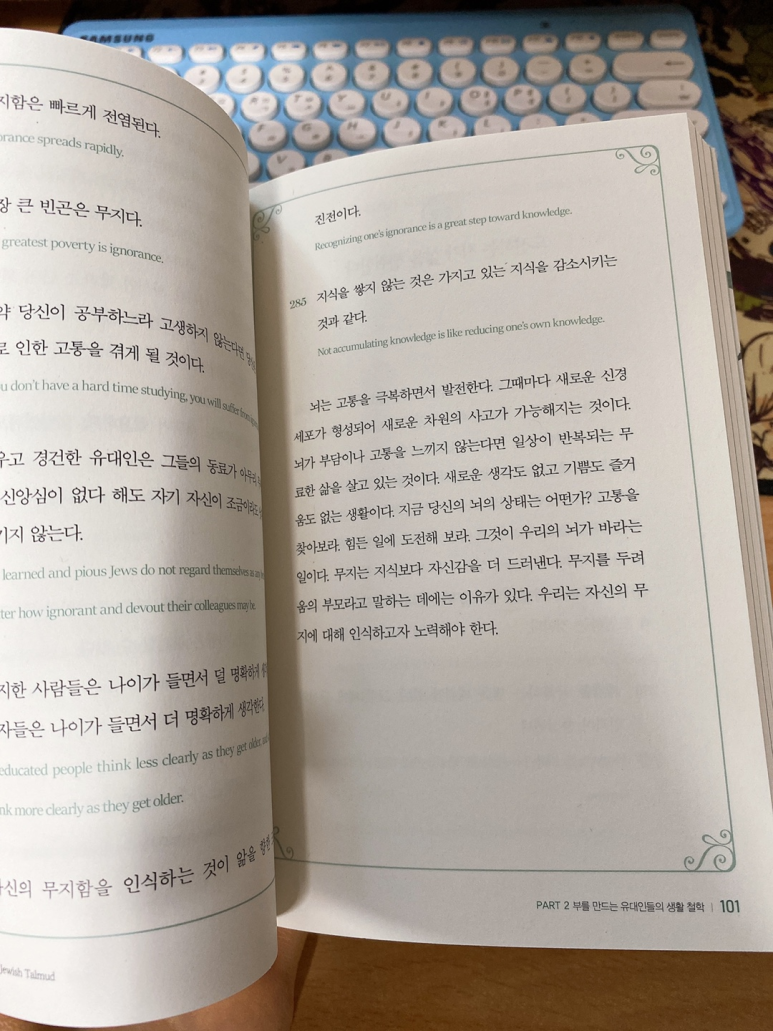 SAMSUNG
지함은 빠르게 전염된다.
orance spreads rapidly.
장 큰 빈곤은 무지다.
greatest poverty is ignorance.
약 당신이 공부하느라 고생하지 않는다면
로 인한 고통을 겪게 될 것이다.
u don't have a hard time studying, you will suffer from
우고 경건한 유대인은 그들의 동료가 아무리
신앙심이 없다 해도 자기 자신이 조금이라도
기지 않는다.
learned and pious Jews do not regard themselves as
ter how ignorant and devout their colleagues may be.
지한 사람들은 나이가 들면서 덜 명확하게
자들은 나이가 들면서 더 명확하게 생각한다.
educated people think less clearly as they get older, and
nk more clearly as they get older.
자신의 무지함을 인식하는 것이 앎을 향한
Jewish Talmud
진전이다.
Recognizing one's ignorance is a great step toward knowledge.
285 지식을 쌓지 않는 것은 가지고 있는 지식을 감소시키는
것과 같다.
Not accumulating knowledge is like reducing one's own knowledge.
뇌는 고통을 극복하면서 발전한다. 그때마다 새로운 신경
세포가 형성되어 새로운 차원의 사고가 가능해지는 것이다.
뇌가 부담이나 고통을 느끼지 않는다면 일상이 반복되는 무
료한 삶을 살고 있는 것이다. 새로운 생각도 없고 기쁨도 즐거
움도 없는 생활이다. 지금 당신의 뇌의 상태는 어떤가? 고통을
찾아보라. 힘든 일에 도전해 보라. 그것이 우리의 뇌가 바라는
일이다. 무지는 지식보다 자신감을 더 드러낸다. 무지를 두려
움의 부모라고 말하는 데에는 이유가 있다. 우리는 자신의 무
지에 대해 인식하고자 노력해야 한다.
PART 2 부를 만드는 유대인들의 생활 철학 | 101